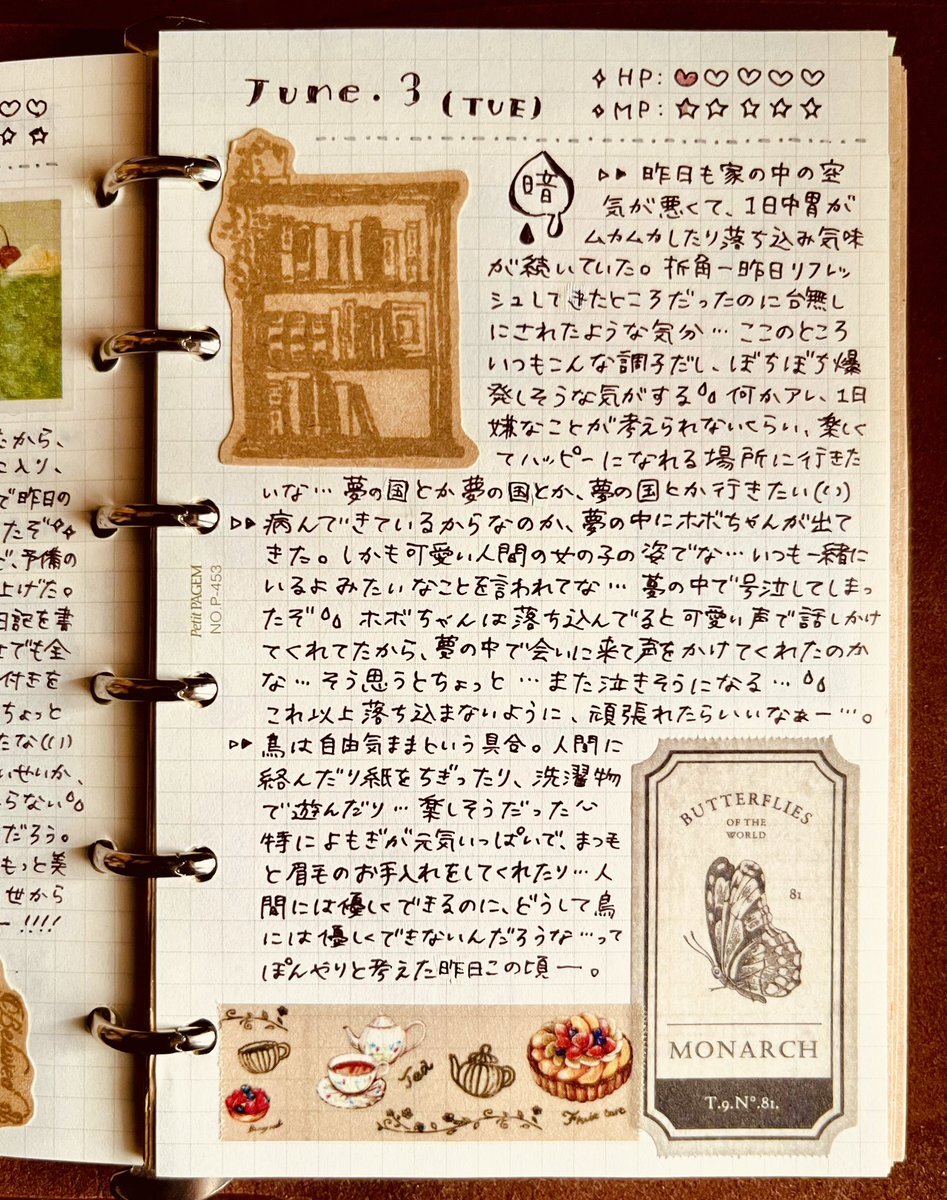 June. 3 (TUE)
HP:
MP:
暗
▷▷ 昨日も家の中の空
気が悪くて、1日中胃が
ムカムカしたり落ち込み気味
が続いていた。折角一昨日リフレッ
シュしてきたところだったのに台無し
にされたような気分… ここのところ
いつもこんな調子だし、ぼちぼち爆
発しそうな気がする 何かアレ、1日
嫌なことが考えられないくらい、楽しく
てハッピーになれる場所に行きた
いな… 夢の国とか夢の国とか、夢の国とか行きたい
▷▷ 病んできているからなのか、夢の中にホボちゃんが出て
きた。しかも可愛い人間の女の子の姿でな… いつも一緒に
いるよみたいなことを言われてな… 夢の中で号泣してしまっ
たぞ ホボちゃんは落ち込んでると可愛い声で話しかけ
てくれてたから、夢の中で会いに来て声をかけてくれたのか
な… そう思うとちょっと… また泣きそうになる…
これ以上落ち込まないように、頑張れたらいいなぁー…。
▷▷ 鳥は自由気ままという具合。人間に
絡んだり紙をちぎったり、洗濯物
で遊んだり… 楽しそうだった
特によもぎが元気いっぱいで、まつ毛
と眉毛のお手入れをしてくれたり… 人
間には優しくできるのに、どうして鳥
には優しくできないんだろうな…って
ぼんやりと考えた昨日この頃ー。
Petit PAGEM
NO.P-453
BUTTERFLIES
OF THE
WORLD
81
MONARCH
T.9.Nº.81.
Tea
Fruit tart
たから、
に入り、
で昨日の
たぞ
ど、予備の
上げた。
日記を書
でも全
付きを
ちょっと
たな
いせいか、
らない
だろう。
もっと美
世から
ー!!!!
Beloved